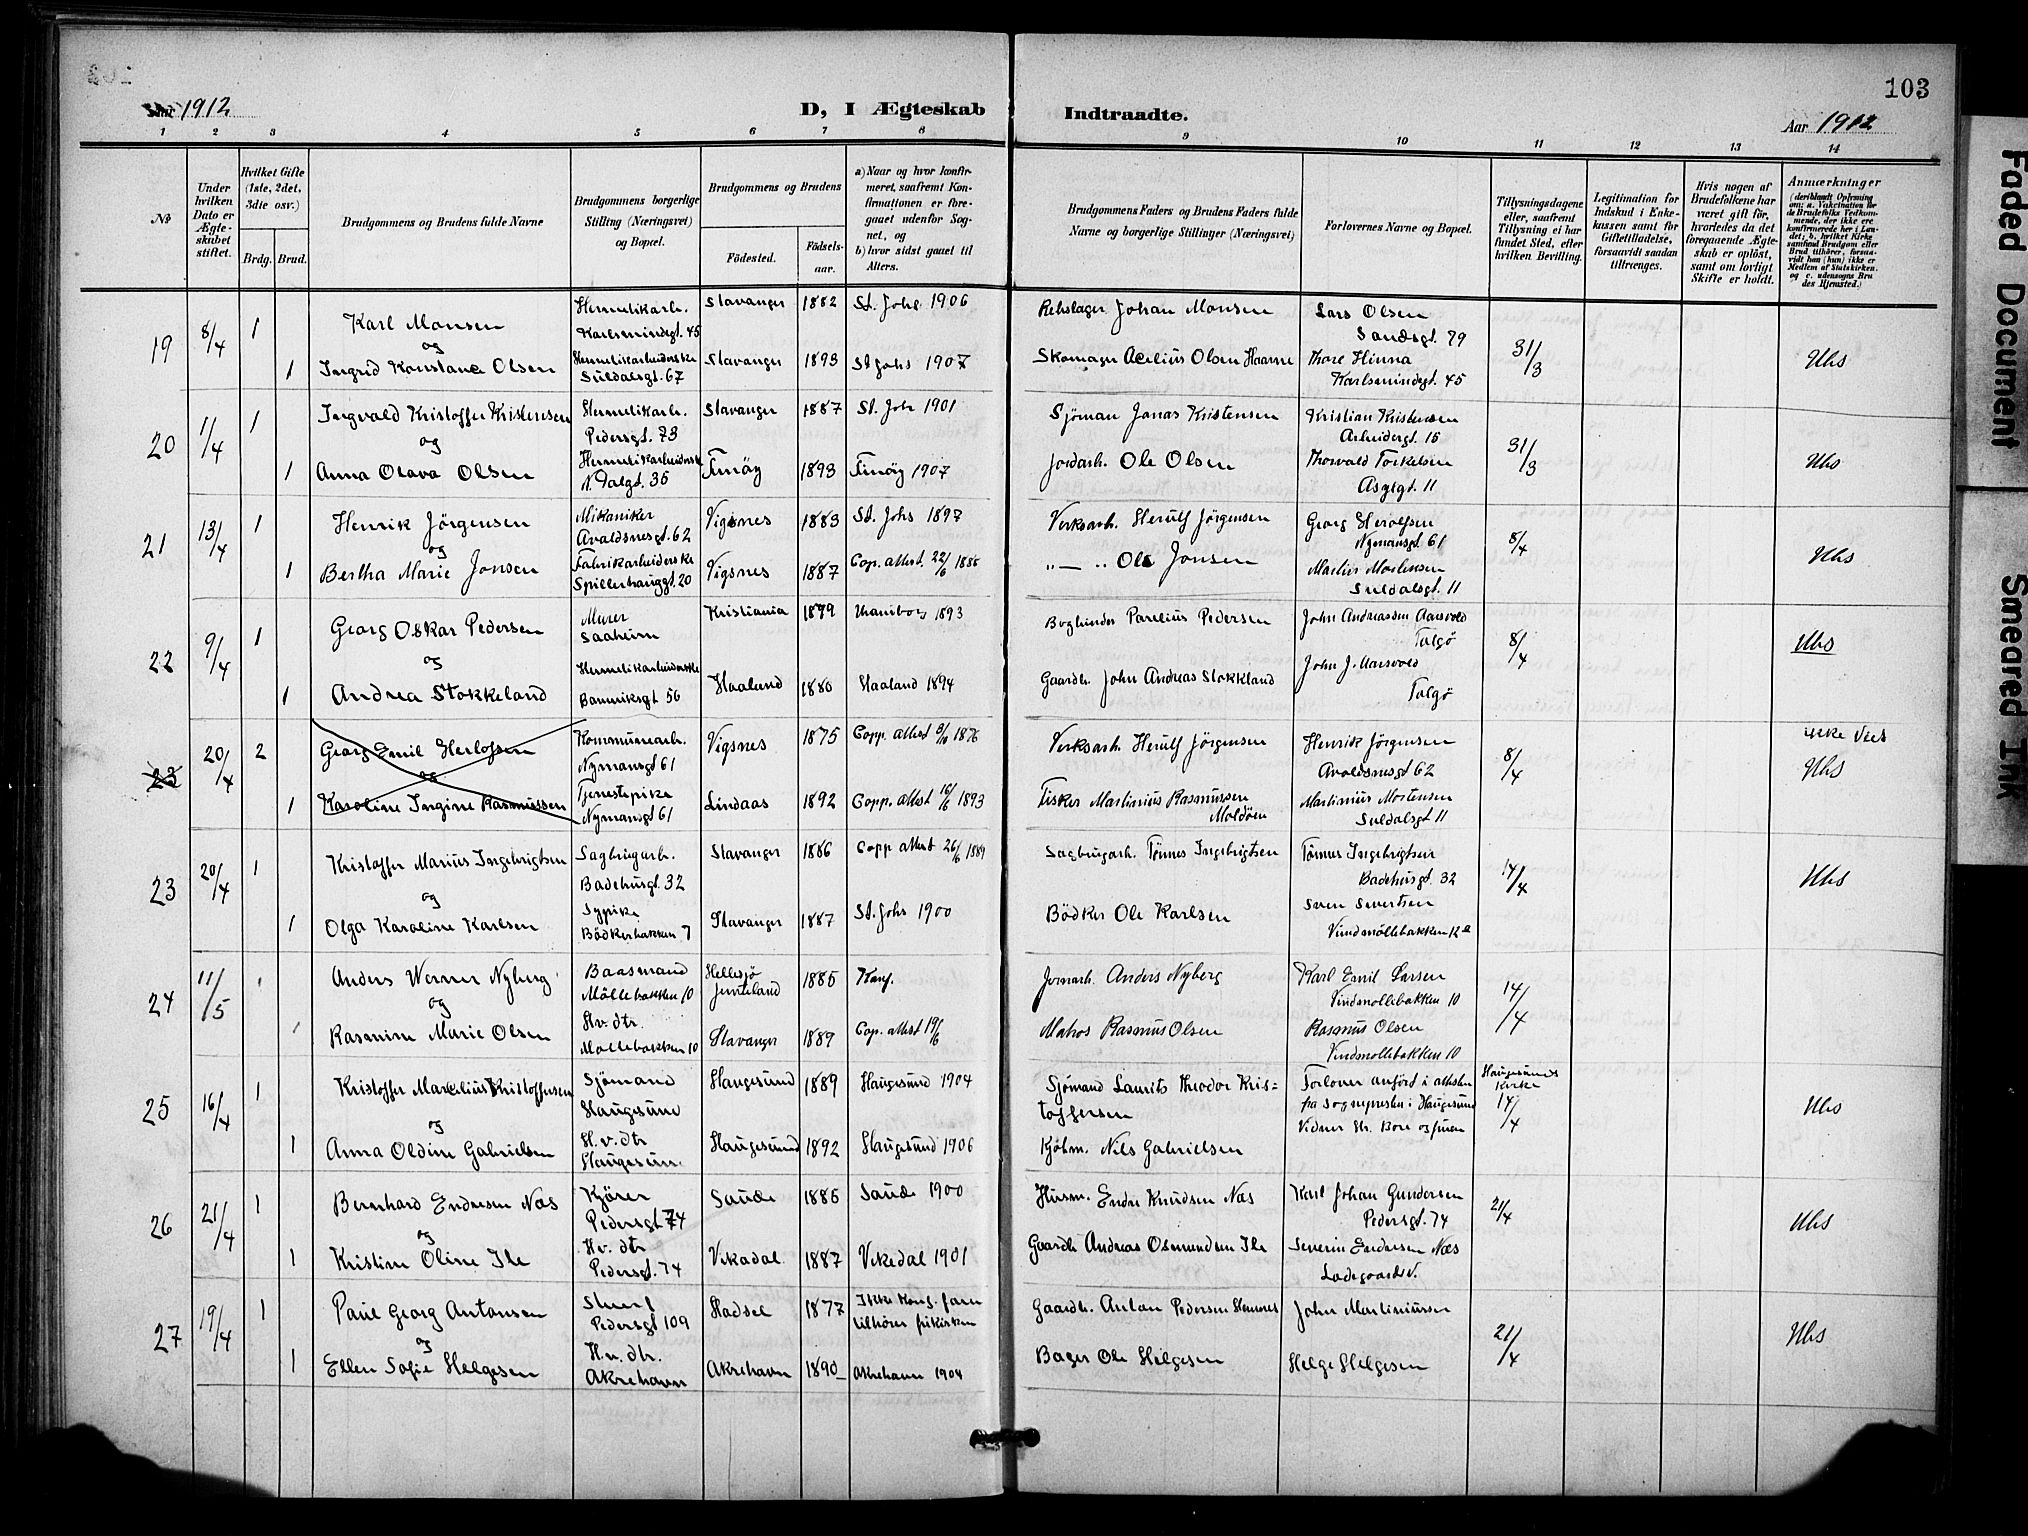 103
Aar 1912
D, I Ægteskab Indtraadte.
Aar 1912
1 2 3 4 5 6 7 8 9 10 11 12 13 14
№
Under hvilken Dato er Ægteskabet stiftet.
Hvilket Gifte (1ste, 2det, 3die osv.)
Brdg. Brud.
Brudgommens og Brudens fulde Navne
Brudgommens borgerlige Stilling (Næringsvei) og Bopæl.
Brudgommens og Brudens
Födested. Födsels-aar.
a) Naar og hvor konfirmeret, saafremt Konfirmationen er foregaaet udenfor Sognet, og
b) hvor sidst gaaet til Alters.
Brudgommens Faders og Brudens Faders fulde Navne og borgerlige Stillinger (Næringsvei)
Forlovernes Navne og Bopæl.
Tillysningsdagene eller, saafremt Tillysning ei har fundet Sted, efter hvilken Bevilling.
Legitimation for Indskud i Enkekassen samt for Giftetilladelse, forsaavidt saadan tiltrænges.
Hvis nogen af Brudefolkene har været gift för, hvorledes da det foregaaende Ægteskab er oplöst, samt om lovligt Skifte er holdt.
Anmærkninger
19 8/4 1 Karl Monsen Hermetikarb. Karlsmindegt. 45 Stavanger 1882 St. Johs 1906 Rebslager Johan Monsen Lars Olsen Sandsgt. 79 31/3 Uhs
og
1 Ingrid Konstance Olsen Hermetikarbeiderske Suldalsgt. 67 Stavanger 1893 St Johs 1907 Skomager Acelius Olsen Haavne Thore Hinna Karlsmindegt. 45
20 1/4 1 Ingvald Kristoffer Kristensen Hermetikarb. Pedersgt. 73 Stavanger 1887 St. Joh 1901 Sjöman Jonas Kristensen Kristian Kristensen Arbeidergt. 16 31/3 Uhs
og
1 Anna Olava Olsen Hermetikarbeiderske N. Dalgt. 35 Finöy 1893 Finöy 1907 Jordarb. Ole Olsen Thorvald Torkelsen Asylgt. 11
21 13/4 1 Henrik Jörgensen Mikaniker Avaldsnesgt. 62 Vigsnes 1883 St. Johs 1897 Verksarb. Herulf Jörgensen Georg Herolfsen Nymansgt. 61 8/4 Uhs
og
1 Bertha Marie Jonsen Fabrikarbeiderske Spillerhauggt. 20 Vigsnes 1887 Cop. attest. 22/6 1886 " — " Ole Jonsen Martin Mortensen Suldalsgt. 11
22 9/4 1 Georg Oskar Pedersen Murer Saaheim Kristiania 1879 1893 Bogbinder Parelius Pedersen John Andreassen Aarsvold Talgö 8/4 Uhs
og
1 Andrea Stokkeland Hermetikarbeiderske Banniksgt 56 Haaland 1880 Haaland 1894 Gaardb. John Andreas Stokkland John J. Aarsvold Talgö
23 20/4 2 Georg Emil Herlofsen Kommunearb. Nymansgt 61 Vigsnes 1875 Copp. attest 1876 Verksarb. Herulf Jörgensen Henrik Jörgensen Avaldsnesgt 62 8/4 ikke Viet Uhs
og
1 Karoline Ingine Rasmussen Tjenestepike Nymansgt 61 Lindaas 1892 Copp. attest 16/6 1893 Fisker Martinius Rasmussen Moldöen Martinius Mortensen Suldalsgt 11
23 20/4 1 Kristoffer Marius Ingebrigtsen Sagbrugarb. Badehusgt. 32 Stavanger 1886 Copp attest 26/6 1889 Sagbrugarb. Tönnes Ingebrigtsen Tönnes Ingebrigtsen Badehusgt. 32 14/4 Uhs
og
1 Olga Karoline Karlsen Sypike Bödkerbakken 7 Stavanger 1887 St. Johs 1900 Bödker Ole Karlsen Sven Sivertsen Vindmöllebakken 12
24 11/5 1 Anders Werner Nyberg Baasmand Möllebakken 10 Hellesjö Jemteland 1885 Konf. Jernarb. Anders Nyberg Karl Emil Larsen Vindmöllebakken 10 14/4
og
1 Rasmine Marie Olsen Hv. dtr. Möllebakken 10 Stavanger 1889 Cop. attest 19/6 Matros Rasmus Olsen Rasmus Olsen Vindmöllebakken 10
25 16/4 1 Kristoffer Marcelius Kristoffersen Sjömand Haugesund Haugesund 1889 Haugesund 1904 Sjömand Laurits Theodor Kristoffersen Forlover anført i attesten fra Sognepresten i Haugesund Haugesunds Kirke 14/4 Uhs
og
1 Anna Oldine Gabrielsen H.v. dtr Haugesun. Haugesund 1892 Haugesund 1906 Kjøbm. Nils Gabrielsen Vidner Hr. Bore og fruen
26 21/4 1 Bernhard Endresen Næs Kjörer Pedersgt 74 Saude 1886 Saude 1900 Husm. Endre Knudsen Næs Karl Johan Gundersen Pedersgt. 74 21/4 Uhs
og
1 Kristine Oline Ile Hv. dtr Pedersgt. 74 Vikadal 1887 Vikedal 1901 Gaardb Andreas Osmundsen Ile Severin Endresen Næs Ladegaardsv.
27 19/4 1 Paul Georg Antonsen Stuert Pedersgt 109 Hadsel 1877 Ikke Konf. fare tilhörer frikirken Gaardb. Anton Pedersen John Martiniussen 21/4 Uhs
og
1 Ellen Sofie Helgesen H.v. dtr. Akrehavn Akrehavn 1890 Akrehavn 1904 Bager Ole Helgesen Helge Helgesen
Faded Document
Smeared Ink